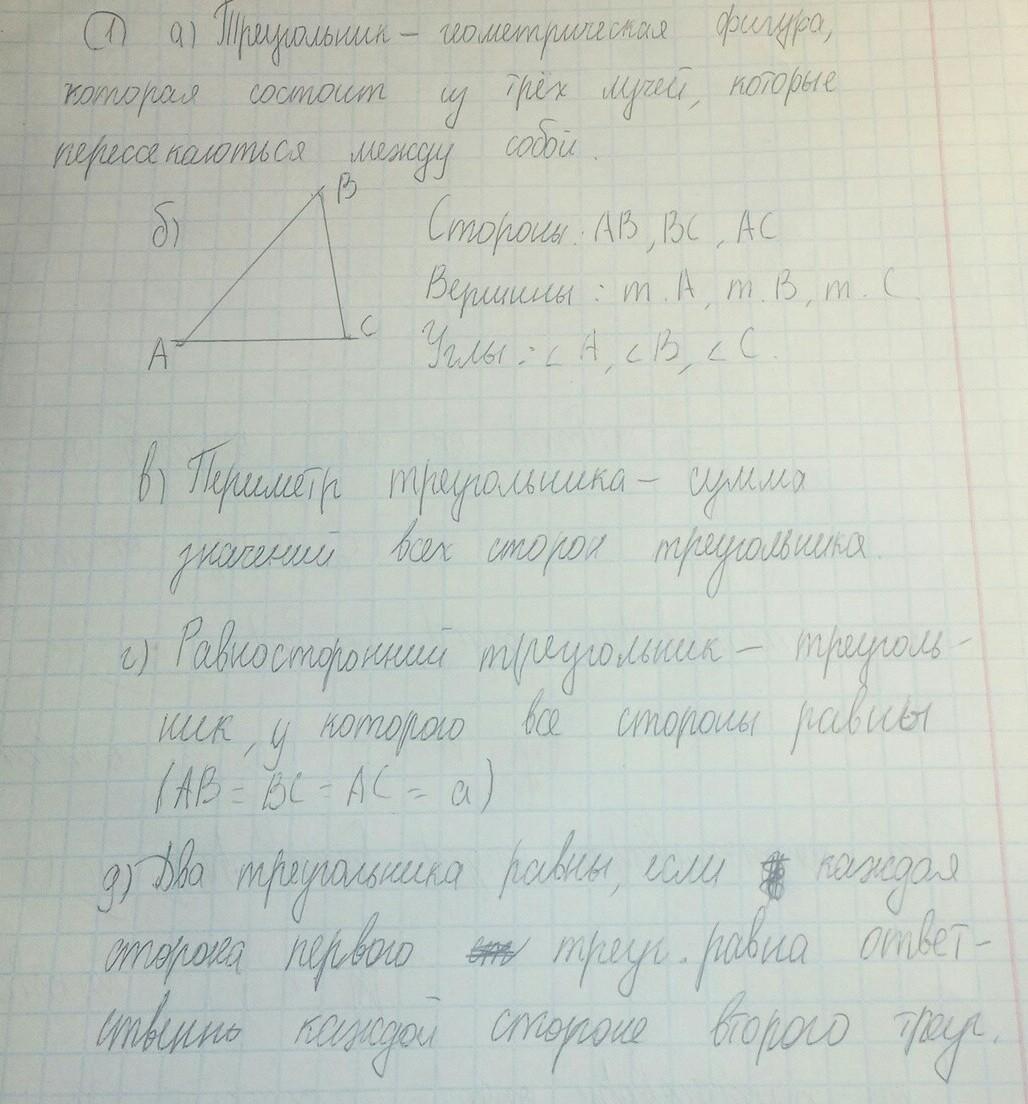 ① а) Треугольник – геометрическая фигура,
которая состоит из трёх лучей, которые
перессекаються между собой.
б)
B
A
C
Стороны: AB, BC, AC
Вершины: т. A, т. B, т. C
Углы: ∠A, ∠B, ∠C.
в) Периметр треугольника – сумма
значений всех сторон треугольника.
г) Равносторонний треугольник – треуголь-
ник, у которого все стороны равны
(AB = BC = AC = a)
д) Два треугольника равны, если каждая
сторона первого треуг. равна ответ-
ственно каждой стороне второго треуг.